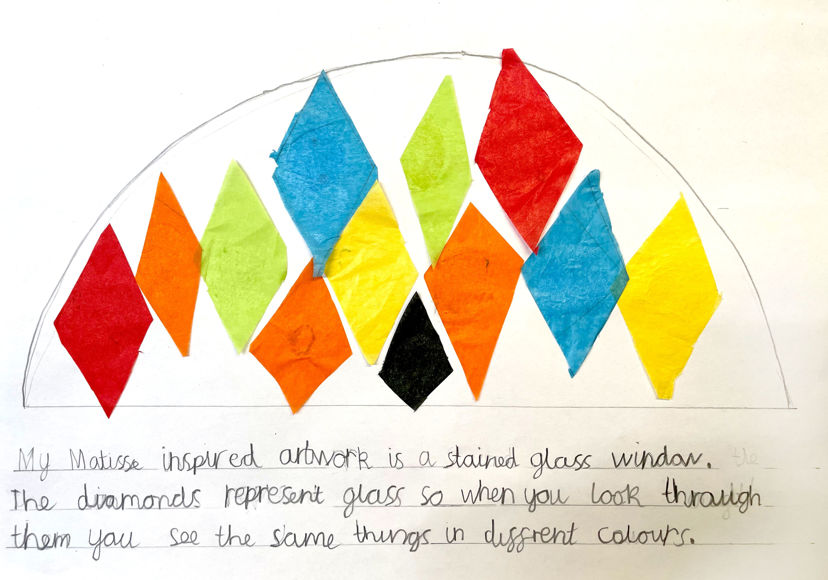 My Matisse inspired artwork is a stained glass window. the
The diamonds represent glass so when you look through
them you see the same things in diffrent colours.